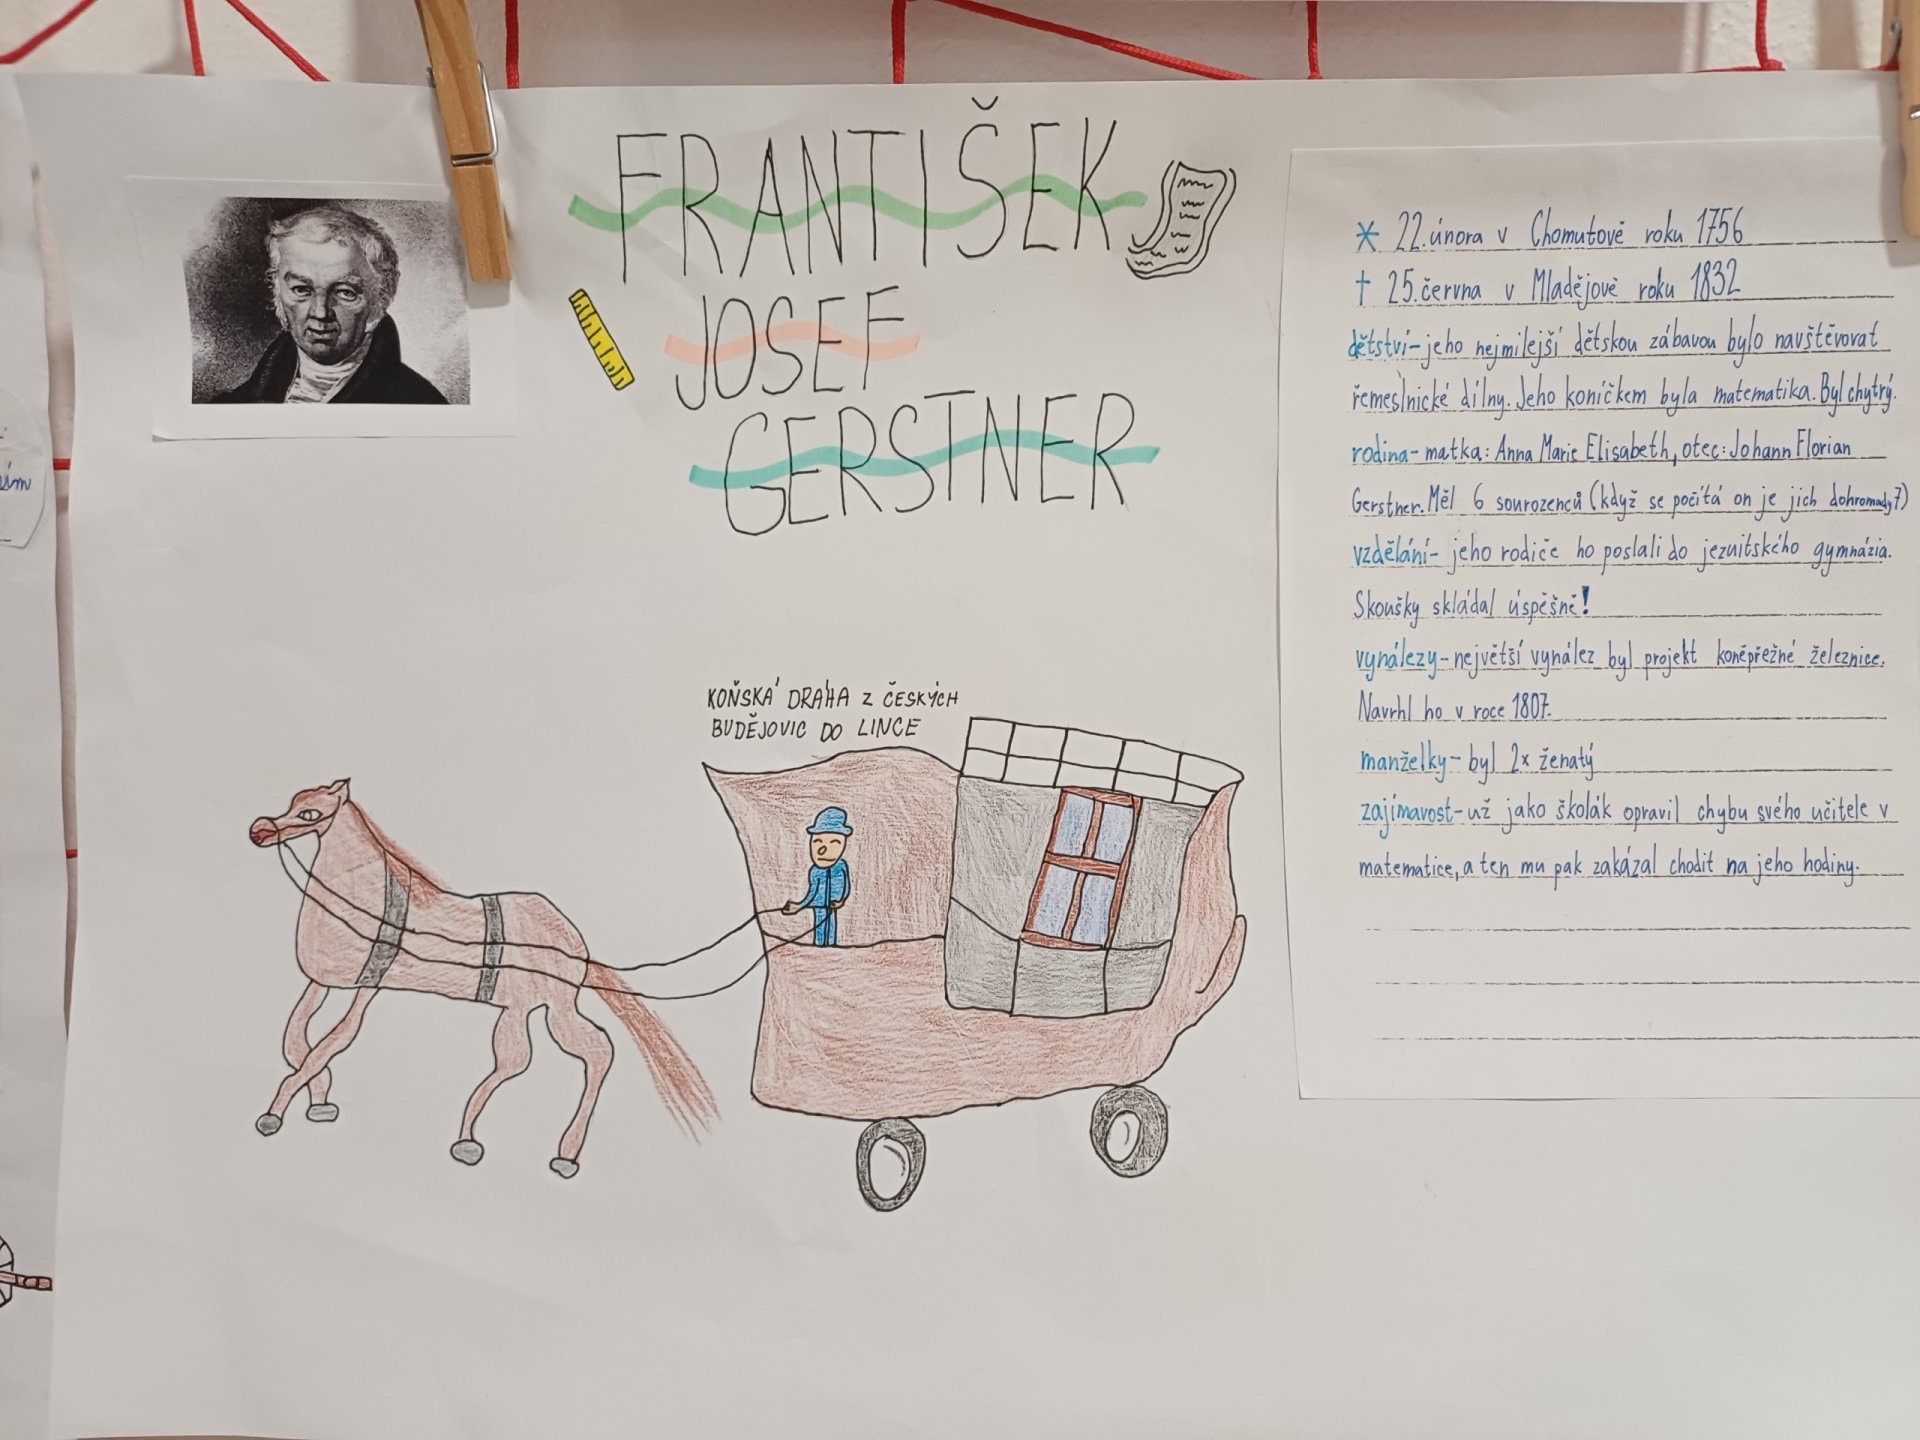 FRANTIŠEK
JOSEF
GERSTNER
KOŇSKÁ DRÁHA Z ČESKÝCH
BUDĚJOVIC DO LINCE
* 22. února v Chomutově roku 1756
† 25. června v Mladějově roku 1832
dětství - jeho nejmilejší dětskou zábavou bylo navštěvovat
řemeslnické dílny. Jeho koníčkem byla matematika. Byl chytrý.
rodina - matka: Anna Marie Elisabeth, otec: Johann Florian
Gerstner. Měl 6 sourozenců (když se počítá on je jich dohromady 7)
vzdělání - jeho rodiče ho poslali do jezuitského gymnázia.
Skoušky skládal úspěšně!
vynálezy - největší vynález byl projekt koněpřežné železnice.
Navrhl ho v roce 1807.
manželky - byl 2x ženatý
zajímavost - už jako školák opravil chybu svého učitele v
matematice, a ten mu pak zakázal chodit na jeho hodiny.